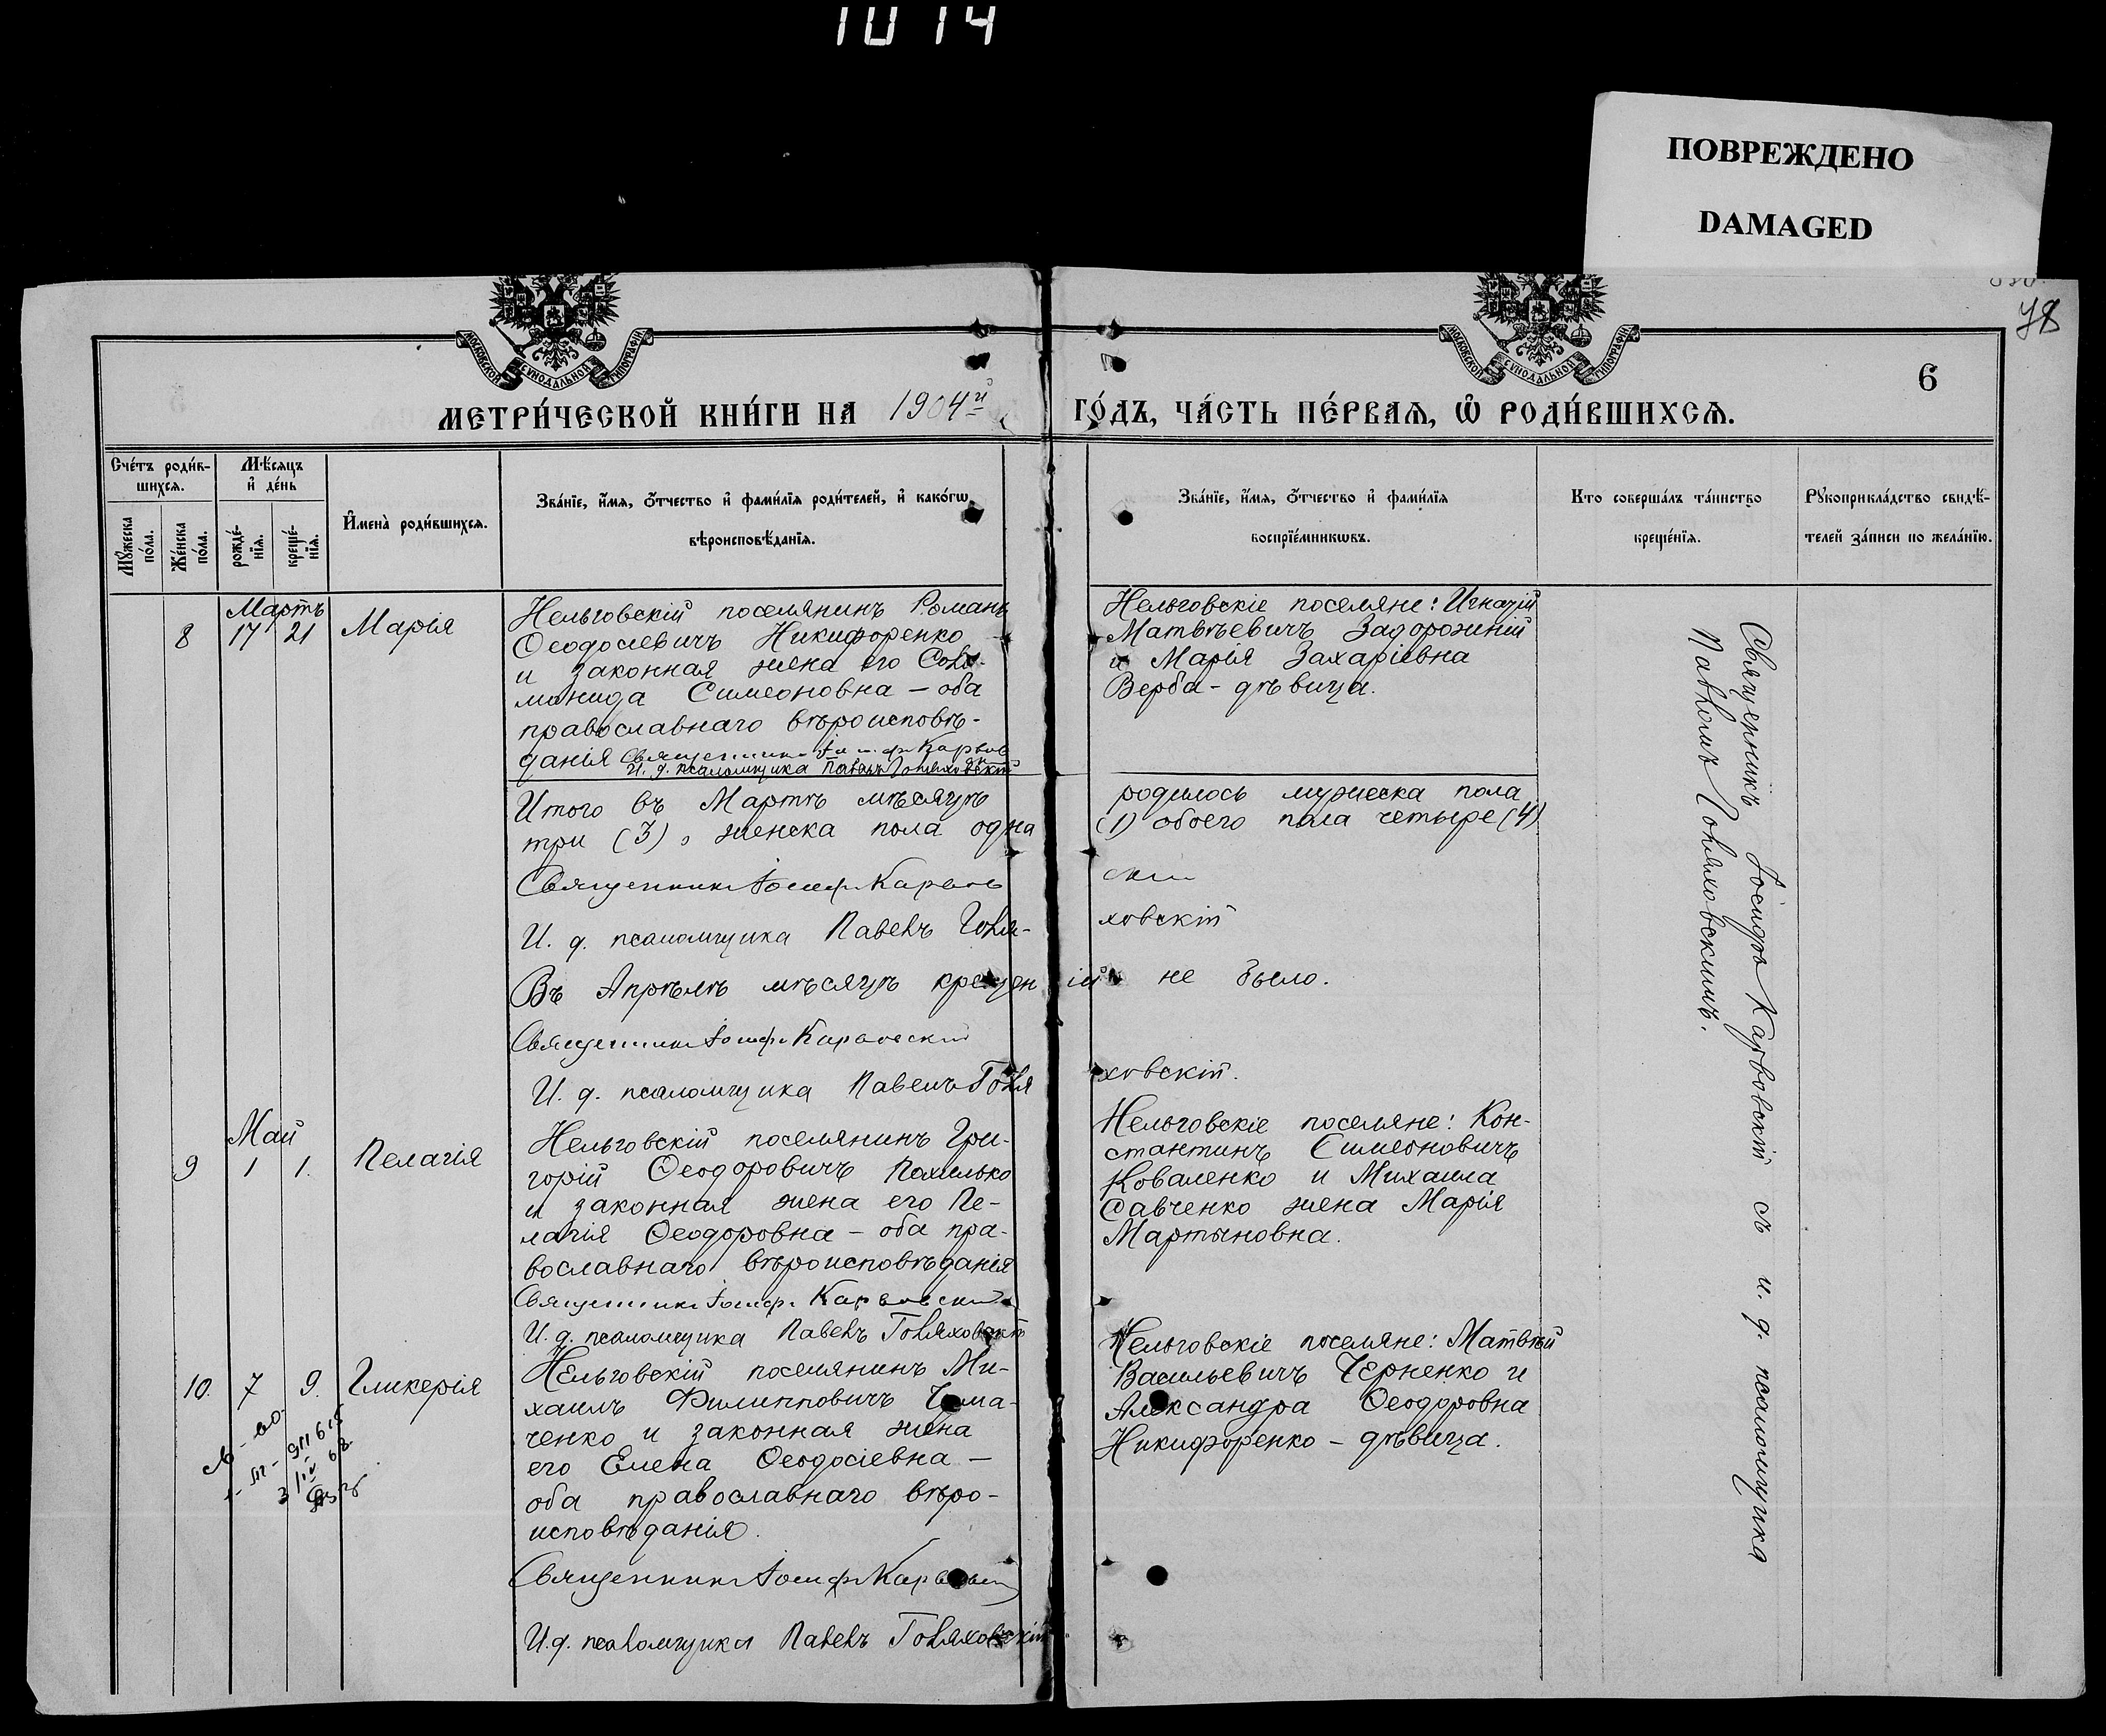 1014
ПОВРЕЖДЕНО
DAMAGED
78
6
МОСКОВСКОЙ СѴНОДАЛЬНОЙ ТИПОГРАФІИ
МОСКОВСКОЙ СѴНОДАЛЬНОЙ ТИПОГРАФІИ
МЕТРИ́ЧЕСКОЙ КНИ́ГИ НА 1904й ГО́ДЪ, ЧА́СТЬ ПЕ́РВАѦ, Ѡ҆ РОДИ́ВШИХСѦ.
Сче́тъ роди́в-
шихсѧ.
Мꙋ́жеска
по́ла.
Же́нска
по́ла.
Мѣ́сяцъ
и҆ де́нь
рожде́-
нїѧ.
креще́-
нїѧ.
И҆мена̀ роди́вшихсѧ.
Зва́нїе, и҆́мѧ, ѻ҆́тчество и҆ фами́лїѧ роди́телей, и҆ како́гѡ
вѣроисповѣ́данїѧ.
Зва́нїе, и҆́мѧ, ѻ҆́тчество и҆ фами́лїѧ
воспрїе́мникѡвъ.
Кто соверша́лъ та́инство
креще́нїѧ.
Рꙋкоприкла́дство свидѣ́-
телей за́писи по жела́нїю.
Мартъ
8 17 21 Марія
Нельговскій поселянинъ Романъ
Ѳеодосіевичъ Никифоренко
и законная жена его Соло-
монида Симеоновна – оба
православнаго вѣроисповѣ-
данія Священникъ Іосифъ Карвов
И. д. псаломщика Павелъ Голяховскій
Нельговскіе поселяне: Игнатій
Матвѣевичъ Задорожній
и Марія Захаріевна
Верба – дѣвица.
Итого въ Мартѣ мѣсяцѣ родилось мужеска пола
три (3), женска пола одна (1) обоего пола четыре (4)
Священникъ Іосифъ Карвовскій
И. д. псаломщика Павелъ Голяховскій
Въ Апрѣлѣ мѣсяцѣ крещеній не было.
Священникъ Іосифъ Карвовскій
И. д. псаломщика Павелъ Голяховскій.
Май
9 1 1. Пелагія
Нельговскій поселянинъ Гри-
горій Ѳеодоровичъ Похилько
и законная жена его Пе-
лагія Ѳеодоровна – оба пра-
вославнаго вѣроисповѣданія
Священникъ Іосифъ Карвовскій
И. д. псаломщика Павелъ Голяховскій
Нельговскіе поселяне: Кон-
стантинъ Симеоновичъ
Коваленко и Михаила
Савченко жена Марія
Мартыновна.
10. 7 9. Гликерія
Нельговскій поселянинъ Ми-
хаилъ Филипповичъ
ченко и законная жена
его Елена Ѳеодосіевна –
оба православнаго вѣро-
исповѣданія.
Священникъ Іосифъ Карвовскій
И. д. псаломщика Павелъ Голяховскій
Нельговскіе поселяне: Матвѣй
Васильевичъ Черненко и
Александра Ѳеодоровна
Никифоренко – дѣвица.
Священникъ Іосифъ Карвовскій съ и. д. псаломщика
Павломъ Голяховскимъ.